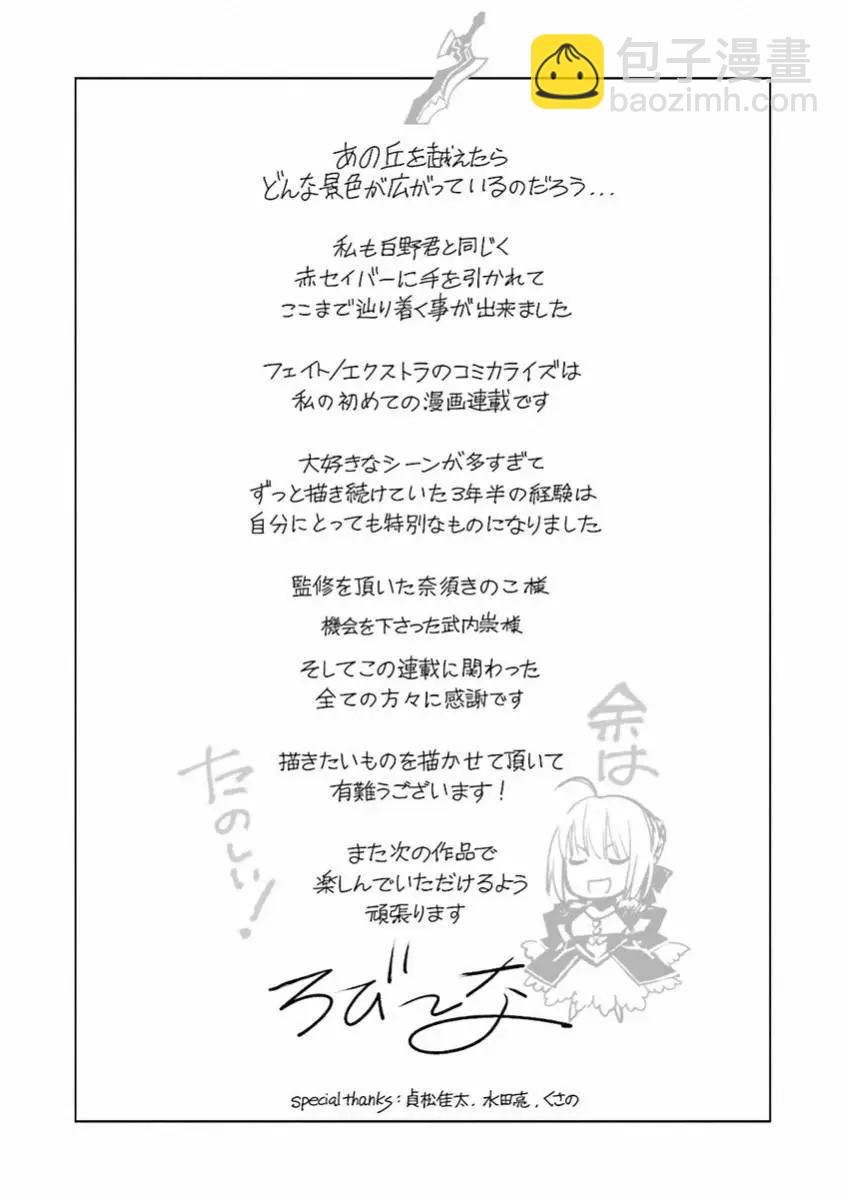 包子漫畫
baozimh.com
あの丘を越えたら
どんな景色が広がっているのだろう...
私も白野君と同じく
赤セイバーに手を引かれて
ここまで辿り着く事が出来ました
フェイト/エクストラのコミカライズは
私の初めての漫画連載です
大好きなシーンが多すぎて
ずっと描き続けていた3年半の経験は
自分にとっても特別なものになりました
監修を頂いた奈須きのこ様
機会を下さった武内崇様
そしてこの連載に関わった
全ての方々に感謝です
描きたいものを描かせて頂いて
有難うございます!
また次の作品で
楽しんでいただけるよう
頑張ります
余は
たのしい!
ろびーな
special thanks:貞松佳太.水田亮.くさの